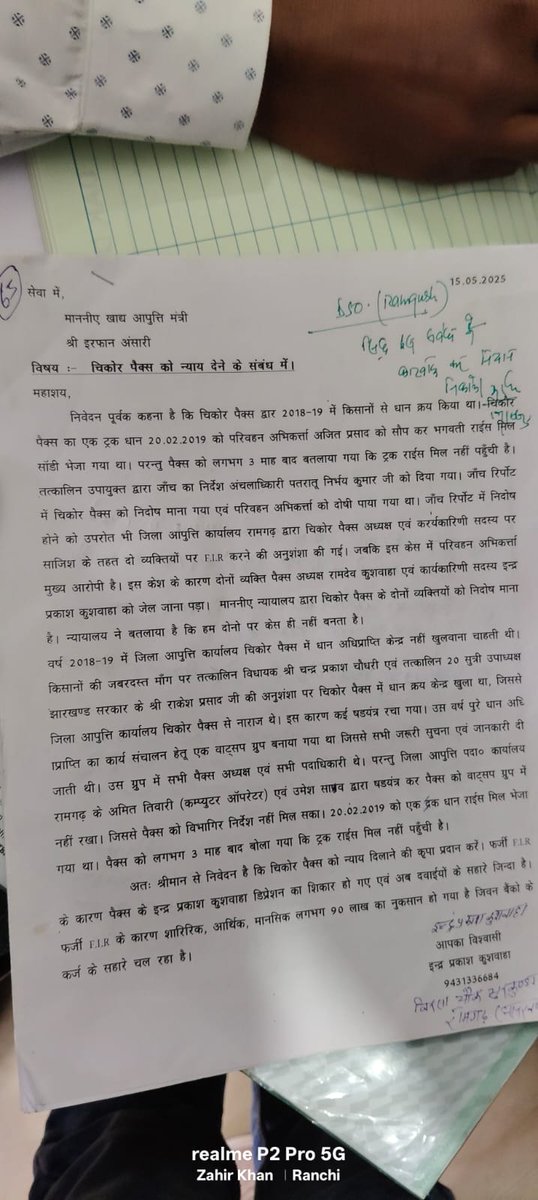 65
सेवा में,
15.05.2025
माननीए खाद्य आपुत्ति मंत्री
श्री इरफान अंसारी
DSO. (Ramgarh)
विषय :- चिकोर पैक्स को न्याय देने के संबंध में।
महाशय,
निवेदन पूर्वक कहना है कि चिकोर पैक्स द्वार 2018-19 में किसानों से धान क्रय किया था। चिकोर
पैक्स का एक ट्रक धान 20.02.2019 को परिवहन अभिकर्त्ता अजित प्रसाद को सौप कर भगवती राईस मिल
सॉडी भेजा गया था। परन्तु पैक्स को लगभग 3 माह बाद बतलाया गया कि ट्रक राईस मिल नहीं पहुँची है।
तत्कालिन उपायुक्त द्वारा जाँच का निर्देश अंचलाधिकारी पतरातू निर्भय कुमार जी को दिया गया। जाँच रिपोर्ट
में चिकोर पैक्स को निदोष माना गया एवं परिवहन अभिकर्त्ता को दोषी पाया गया था। जाँच रिपोर्ट में निदोष
होने को उपरोत भी जिला आपुत्ति कार्यालय रामगढ़ द्वारा चिकोर पैक्स अध्यक्ष एवं कर्यकारिणी सदस्य पर
साजिश के तहत दो व्यक्तियों पर F.I.R करने की अनुशंशा की गई। जबकि इस केस में परिवहन अभिकर्त्ता
मुख्य आरोपी है। इस केश के कारण दोनों व्यक्ति पैक्स अध्यक्ष रामदेव कुशवाहा एवं कार्यकारिणी सदस्य इन्द्र
प्रकाश कुशवाहा को जेल जाना पड़ा। माननीए न्यायालय द्वारा चिकोर पैक्स के दोनों व्यक्तियों को निदोष माना
है। न्यायालय ने बतलाया है कि हम दोनो पर केस ही नहीं बनता है।
वर्ष 2018-19 में जिला आपुत्ति कार्यालय चिकोर पैक्स में धान अधिप्राप्ति केन्द्र नहीं खुलवाना चाहती थी।
किसानों की जबरदस्त माँग पर तत्कालिन विधायक श्री चन्द्र प्रकाश चौधरी एवं तत्कालिन 20 सुत्री उपाध्यक्ष
झारखण्ड सरकार के श्री राकेश प्रसाद जी की अनुशंशा पर चिकोर पैक्स में धान क्रय केन्द्र खुला था, जिससे
जिला आपुत्ति कार्यालय चिकोर पैक्स से नाराज थे। इस कारण कई षडयंत्र रचा गया। उस वर्ष पुरे धान अधि
प्राप्ति का कार्य संचालन हेतू एक वाट्सप ग्रुप बनाया गया था जिससे सभी जरूरी सुचना एवं जानकारी दी
जाती थी। उस ग्रुप में सभी पैक्स अध्यक्ष एवं सभी पदाधिकारी थे। परन्तु जिला आपुत्ति पदा० कार्यालय
रामगढ़ के अमित तिवारी (कम्प्युटर ऑपरेटर) एवं उमेश साव द्वारा षडयंत्र कर पैक्स को वाट्सप ग्रुप में
नहीं रखा। जिससे पैक्स को विभागिर निर्देश नहीं मिल सका। 20.02.2019 को एक ट्रक धान राईस मिल भेजा
गया था। पैक्स को लगभग 3 माह बाद बोला गया कि ट्रक राईस मिल नहीं पहुँची है।
अतः श्रीमान से निवेदन है कि चिकोर पैक्स को न्याय दिलाने की कृपा प्रदान करें। फर्जी F.I.R
के कारण पैक्स के इन्द्र प्रकाश कुशवाहा डिप्रेशन का शिकार हो गए एवं अब दवाईयों के सहारे जिन्दा है।
फर्जी F.I.R के कारण शारिरिक, आर्थिक, मानसिक लगभग 90 लाख का नुकसान हो गया है जिवन बैंको के
कर्ज के सहारे चल रहा है।
आपका विश्वासी
इन्द्र प्रकाश कुशवाहा
9431336684
realme P2 Pro 5G
Zahir Khan | Ranchi